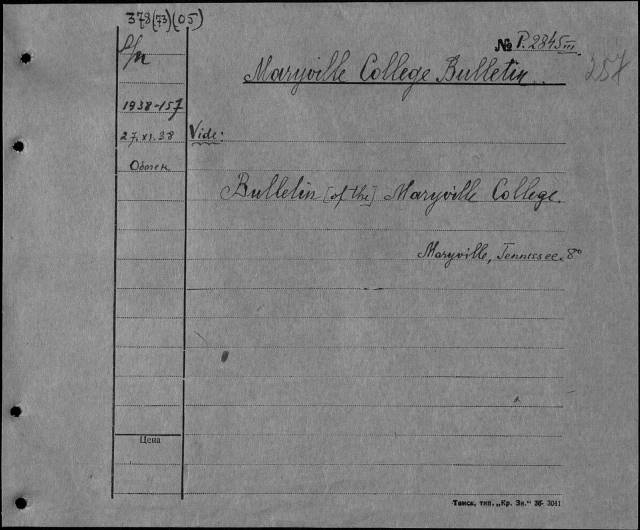 378(73)(05)
P/n
№ P.2845 III
257
Maryville College Bulletin.
1938-157
27.XI.38
Vide:
Обмен
Bulletin [of the] Maryville College.
Maryville, Tennissee. 8°
Цена
Томск, тип. „Кр. Зн." 36- 3041